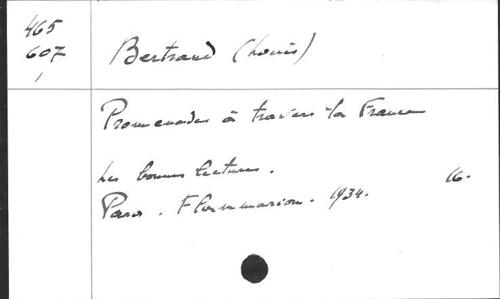 465
607
/
Bertrand (Louis)
Promenades à travers la France
Les bonnes lectures.
Paris. Flammarion. 1934. 16.